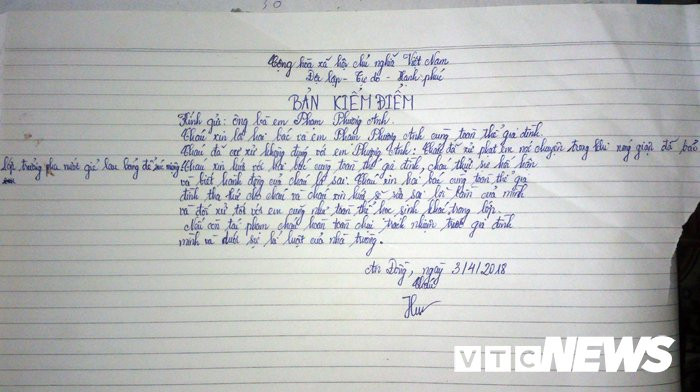 Cộng hòa xã hội chủ nghĩa Việt Nam
Độc lập - Tự do - Hạnh phúc
BẢN KIỂM ĐIỂM
Kính gửi: ông bà em Phạm Phương Anh.
Cháu xin lỗi hai bác và em Phạm Phương Anh cùng toàn thể gia đình.
Cháu đã cư xử không đúng với em Phương Anh: Cháu đã xử phạt em nói chuyện trong khi nóng giận đã bảo
lớp trưởng pha nước giẻ lau bảng để súc miệng. Cháu xin hứa với hai bác cùng toàn thể gia đình, cháu thực sự hối hận
và biết hành động của cháu là sai. Cháu xin hai bác cùng toàn thể gia
đình tha thứ cho cháu và cháu xin hứa sẽ sửa sai lỗi lầm của mình
và đối xử tốt với em cũng như toàn thể học sinh khác trong lớp.
Nếu còn tái phạm cháu hoàn toàn chịu trách nhiệm trước gia đình
mình và dưới sự kỉ luật của nhà trường.
An Đồng, ngày 3/4/2018
Cháu
Hư
VTC NEWS